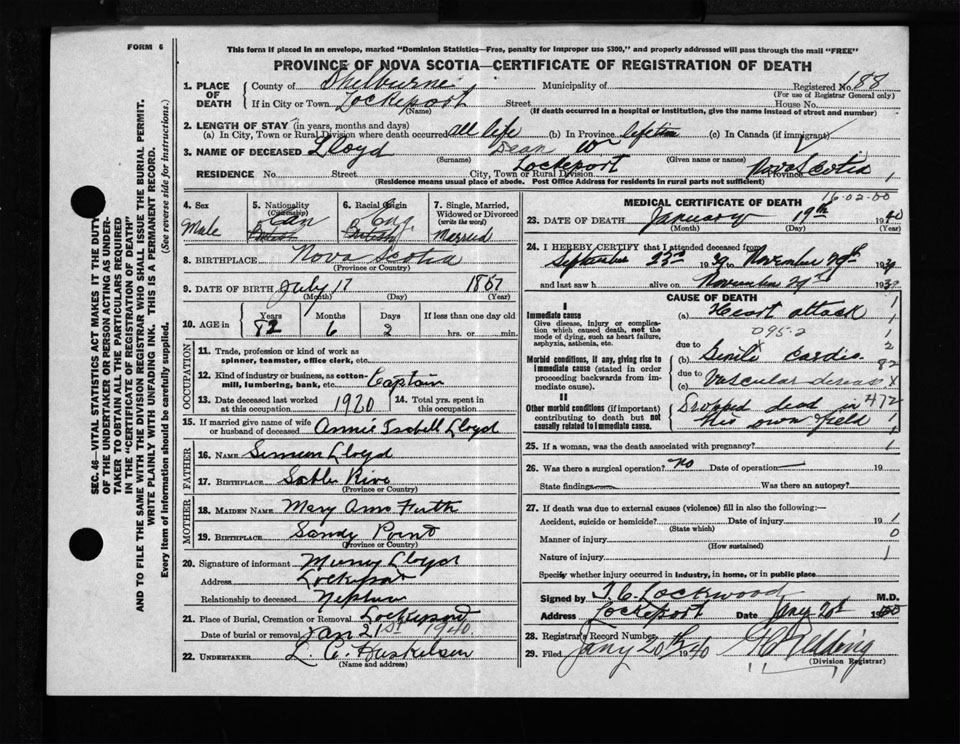 FORM 6
This form if placed in an envelope, marked "Dominion Statistics—Free, penalty for improper use $300," and properly addressed will pass through the mail "FREE"
PROVINCE OF NOVA SCOTIA—CERTIFICATE OF REGISTRATION OF DEATH
SEC. 46—VITAL STATISTICS ACT MAKES IT THE DUTY
OF THE UNDERTAKER OR PERSON ACTING AS UNDER-
TAKER TO OBTAIN ALL THE PARTICULARS REQUIRED
IN THE "CERTIFICATE OF REGISTRATION OF DEATH"
AND TO FILE THE SAME WITH THE DIVISION REGISTRAR WHO SHALL ISSUE THE BURIAL PERMIT.
WRITE PLAINLY WITH UNFADING INK. THIS IS A PERMANENT RECORD.
Every item of information should be carefully supplied. (See reverse side for instructions.)
1. PLACE OF DEATH County of Shelburne Municipality of Registered No. 188
(For use of Registrar General only)
If in City or Town Lockeport Street House No.
(Name) (If death occurred in a hospital or institution, give the name instead of street and number)
2. LENGTH OF STAY (in years, months and days)
(a) In City, Town or Rural Division where death occurred all life (b) In Province lifetime (c) In Canada (if immigrant)
3. NAME OF DECEASED Lloyd Dean W
(Surname) (Given name or names)
RESIDENCE No. Street City, Town or Rural Division Lockeport Province Nova Scotia
(Residence means usual place of abode. Post Office Address for residents in rural parts not sufficient)
4. Sex Male
5. Nationality (Citizenship) Can British
6. Racial Origin Eng British
7. Single, Married, Widowed or Divorced (write the word) Married
8. BIRTHPLACE Nova Scotia
(Province or Country)
9. DATE OF BIRTH July 17 1857
(Month) (Day) (Year)
10. AGE in Years Months Days If less than one day old
82 6 2 hrs. or min.
OCCUPATION
11. Trade, profession or kind of work as spinner, teamster, office clerk, etc.
12. Kind of industry or business, as cotton-mill, lumbering, bank, etc. Captain
13. Date deceased last worked at this occupation 1920 14. Total yrs. spent in this occupation
15. If married give name of wife or husband of deceased Annie Isabell Lloyd
FATHER
16. NAME Simeon Lloyd
17. BIRTHPLACE Sable River
(Province or Country)
MOTHER
18. MAIDEN NAME Mary Ann Firth
19. BIRTHPLACE Sandy Point
(Province or Country)
20. Signature of informant Murray Lloyd
Address Lockeport
Relationship to deceased Nephew
21. Place of Burial, Cremation or Removal Lockeport
Date of burial or removal Jan 21st 1940
22. UNDERTAKER L. C. Huskilson
(Name and address)
MEDICAL CERTIFICATE OF DEATH
16-02-00
23. DATE OF DEATH January 19th 1940
(Month) (Day) (Year)
24. I HEREBY CERTIFY that I attended deceased from
September 23rd 1939 to November 29th 1939
and last saw h alive on November 29th 1939
CAUSE OF DEATH
I
Immediate cause (a) Heart attack
Give disease, injury or complication which caused death, not the mode of dying, such as heart failure, asphyxia, asthenia, etc.
095-2
due to
Morbid conditions, if any, giving rise to immediate cause (stated in order proceeding backwards from immediate cause). (b) Senile Cardio
due to
(c) Vascular disease
II
Other morbid conditions (if important) contributing to death but not causally related to immediate cause.
Dropped dead in
his own field
1 1 2 82 X 472 1
25. If a woman, was the death associated with pregnancy?
26. Was there a surgical operation? no Date of operation 19
State findings Was there an autopsy?
27. If death was due to external causes (violence) fill in also the following:—
Accident, suicide or homicide? Date of injury 19
(State which)
Manner of injury
(How sustained)
Nature of injury
1 0 1
Specify whether injury occurred in industry, in home, or in public place
Signed by T. C. Lockwood M.D.
Address Lockeport Date Jany 20th 1940
28. Registrar's Record Number
29. Filed Jany 20th 1940
(Division Registrar)